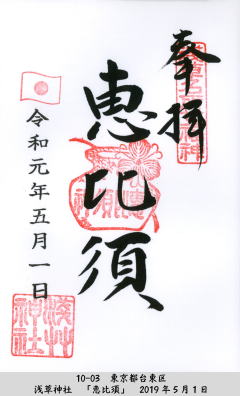 奉拝
恵比須
令和元年五月一日
浅草神社
10-03　東京都台東区
浅草神社　「恵比須」　2019年5月1日